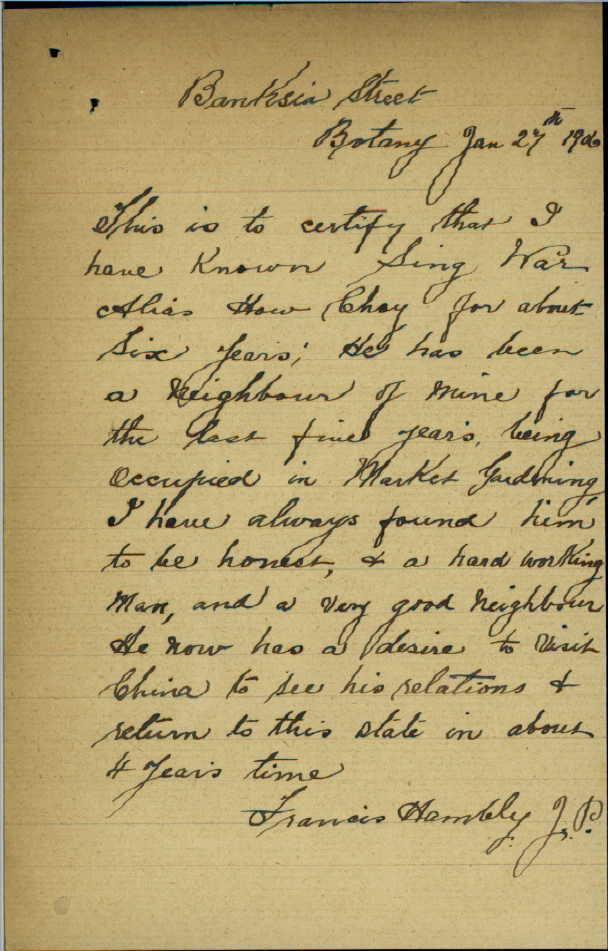 Banksia Street
Botany Jan 27th 1906
This is to certify that I
have Known Sing War
Alias How Choy for about
Six Years; He has been
a Neighbour of Mine for
the last five years, being
Occupied in Market Gardening
I have always found him
to be honest, & a hard working
Man, and a very good Neighbour
He now has a desire to Visit
China to see his relations &
return to this state in about
4 Years time
Francis Hambly J.P.